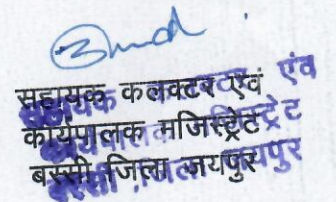 सहायक कलक्टर एवं
कार्यपालक मजिस्ट्रेट
बस्सी जिला जयपुर